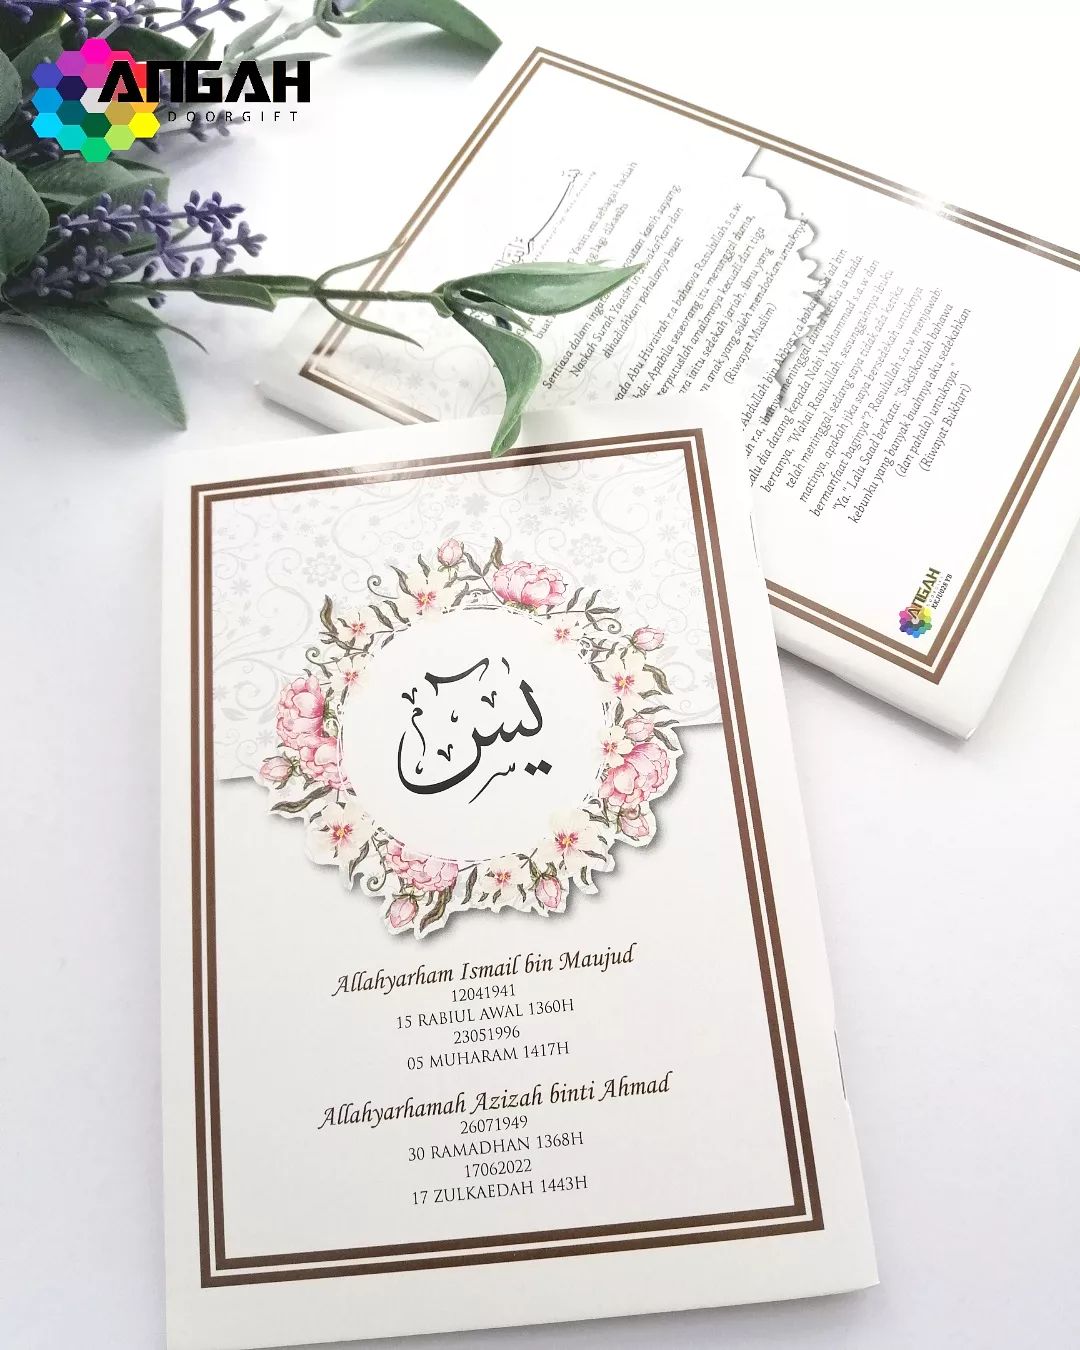 ANGAH
DOORGIFT
يس
Allahyarham Ismail bin Maujud
12041941
15 RABIUL AWAL 1360H
23051996
05 MUHARAM 1417H
Allahyarhamah Azizah binti Ahmad
26071949
30 RAMADHAN 1368H
17062022
17 ZULKAEDAH 1443H
sebagai hadiah
buat
lagi dikasihi
Sentiasa dalam
kasih sayang
Naskah Surah Yaasin ini diwakafkan dan
dihadiahkan pahalanya buat
Abu Hurairah r.a bahawa Rasulullah s.a.w
Apabila seseorang itu meninggal dunia,
terputuslah amalannya kecuali dari tiga
iaitu sedekah jariah, ilmu yang
anak yang soleh mendoakan untuknya."
(Riwayat Muslim)
Abdullah bin Abbas r.a bahawa Sa'ad bin
r.a, ibunya meninggal dunia ketika ia tiada.
Lalu dia datang kepada Nabi Muhammad s.a.w dan
bertanya, "Wahai Rasulullah sesungguhnya ibuku
telah meninggal sedang saya tidak ada ketika
matinya, apakah jika saya bersedekah untuknya
bermanfaat baginya"? Rasulullah s.a.w menjawab:
"Ya." Lalu Saad berkata: "Saksikanlah bahawa
kebunku yang banyak buahnya aku sedekahkan
(dan pahala) untuknya."
(Riwayat Bukhari)
ANGAH